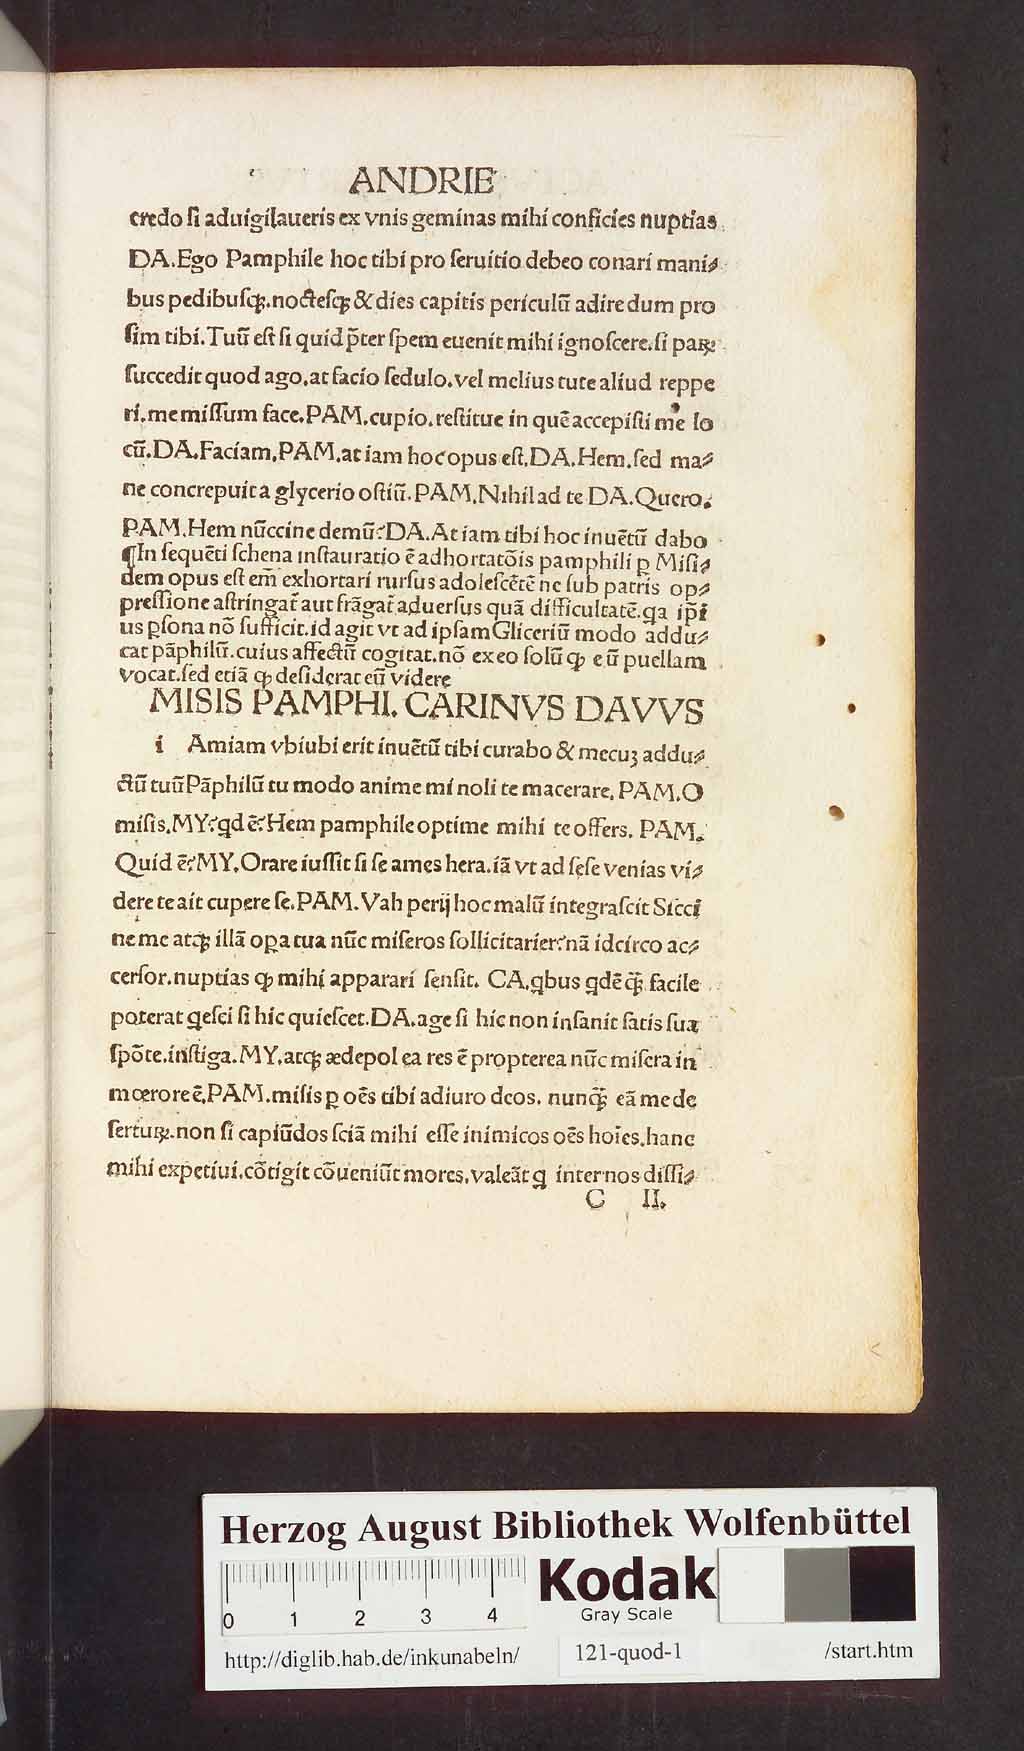 ANDRIE
credo ſi aduigilaueris ex vnis geminas mihi conficies nuptias
DA.Ego Pamphile hoc tibi pro ſeruitio debeo conari mani⸗
bus pedibuſqꝫ.nocteſqꝫ & dies capitis periculū adire dum pro
ſim tibi.Tuū eſt ſi quid p̄ter ſpem euenit mihi ignoſcere.ſi paꝝ
ſuccedit quod ago.at facio ſedulo.vel melius tute aliud reppe
ri.me miſſum face.PAM.cupio.reſtitue in quē accepiſti me lo
cū.DA.Faciam.PAM.at iam hoc opus eſt.DA.Hem.ſed ma⸗
ne concrepuit a glycerio oſtiū.PAM.Nihil ad te DA.Quero.
PAM.Hem nūccine demū?DA.At iam tibi hoc inuētū dabo
¶In ſequēti ſchena inſtauratio ē adhortatōis pamphili ꝑ Miſi⸗
dem opus eſt em̄ exhortari rurſus adoleſcētē ne ſub patris op⸗
preſſione aſtringat̄ aut frāgat̄ aduerſus quā difficultatē.qa ip̄i
us ꝑſona nō ſufficit.id agit vt ad ipſam Gliceriū modo addu⸗
cat pāphilū.cuius affectū cogitat.nō ex eo ſolū ꝙ eū puellam
vocat.ſed etiā ꝙ deſiderat eū videre
MISIS PAMPHI. CARINVS DAVVS
i Amiam vbiubi erit inuētū tibi curabo & mecuꝫ addu⸗
ctū tuū Pāphilū tu modo anime mi noli te macerare. PAM.O
miſis.MY?qd ē?Hem pamphile optime mihi te offers. PAM.
Quid ē?MY.Orare iuſſit ſi ſe ames hera.iā vt ad ſeſe venias vi⸗
dere te ait cupere ſe.PAM.Vah perij hoc malū integraſcit Sicci
ne me atqꝫ illā oꝑa tua nūc miſeros ſollicitarier?nā idcirco ac⸗
cerſor.nuptias ꝙ mihi apparari ſenſit. CA.qbus qdē q̄ꝫ facile
poterat qeſci ſi hic quieſcet.DA.age ſi hic non inſanit ſatis ſua
ſpōte.inſtiga.MY.atqꝫ ædepol ea res ē propterea nūc miſera in
mœrore ē.PAM.miſis ꝑ oēs tibi adiuro deos. nunq̄ꝫ eā me de
ſertuꝝ.non ſi capiūdos ſciā mihi eſſe inimicos oēs hoīes.hanc
mihi expetiui.cōtigit cōueniūt mores.valeāt q inter nos diſſi⸗
C II.
Herzog August Bibliothek Wolfenbüttel
0 1 2 3 4
Kodak
Gray Scale
http://diglib.hab.de/inkunabeln/ 121-quod-1 /start.htm